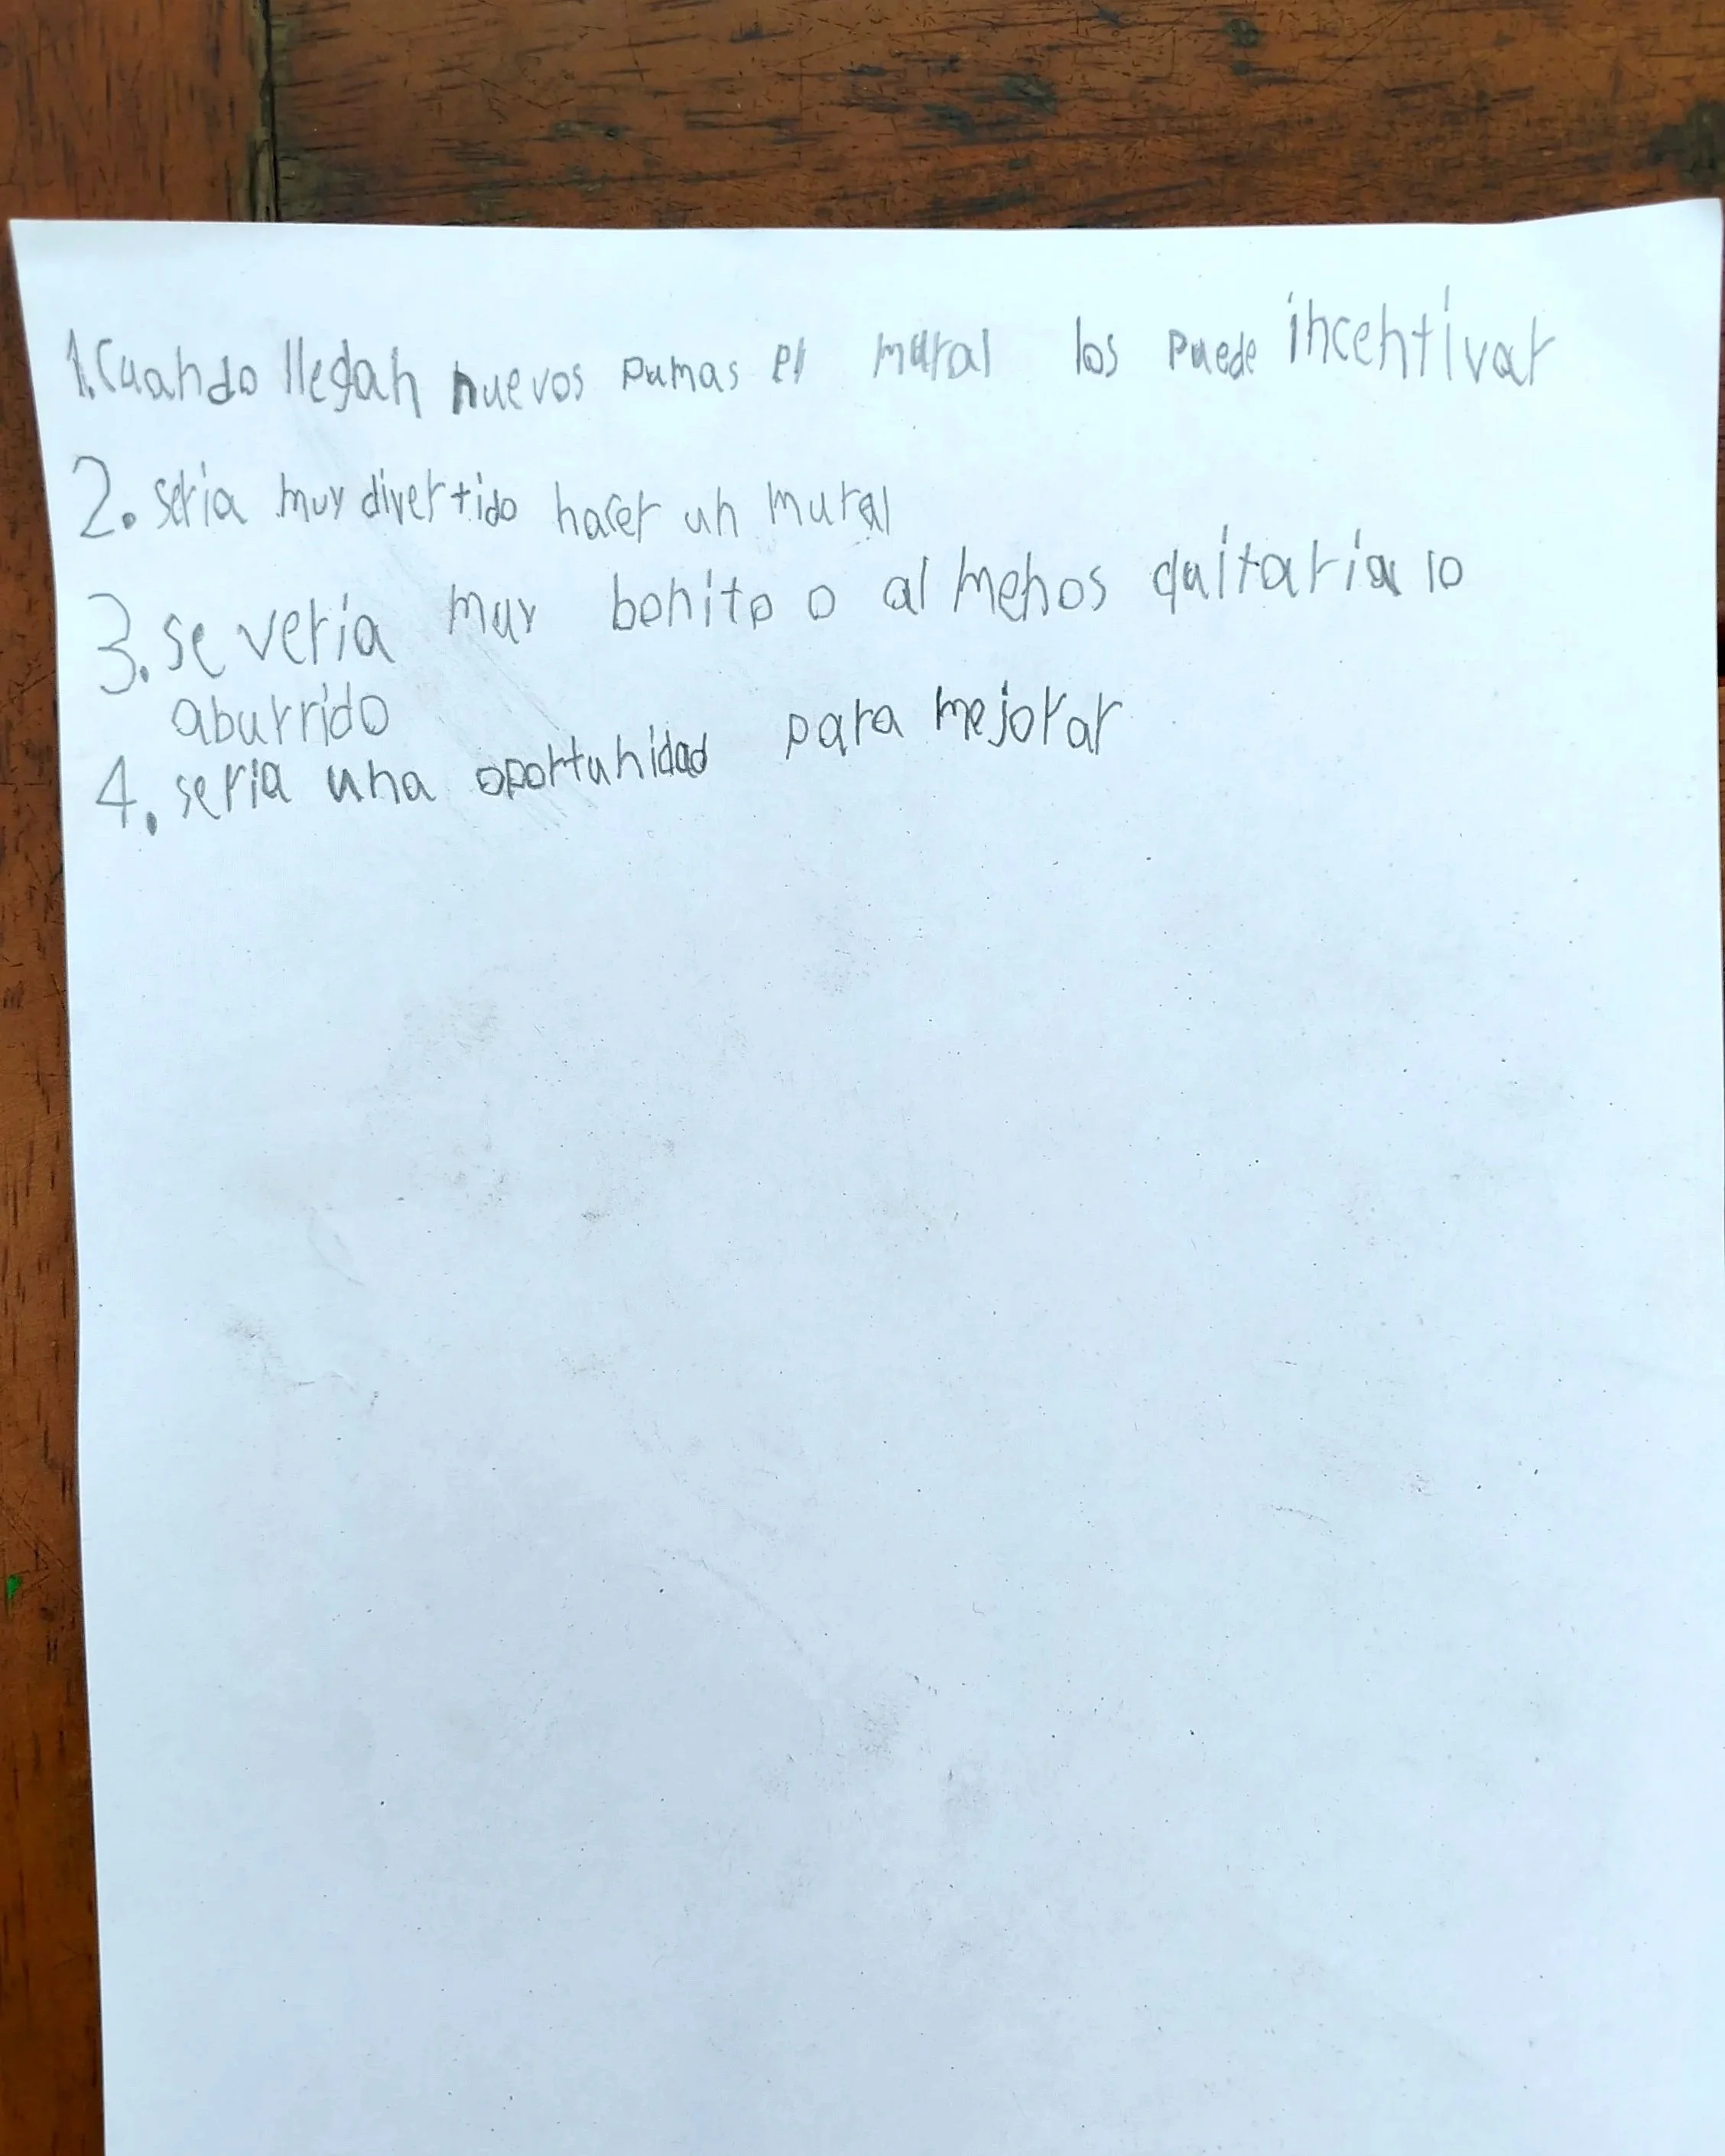 1. Cuando llegan nuevos pumas el mural los puede incentivar
2. seria muy divertido hacer un mural
3. se vería muy bonito o al menos quitaria lo
aburrido
4. seria una oportunidad para mejorar